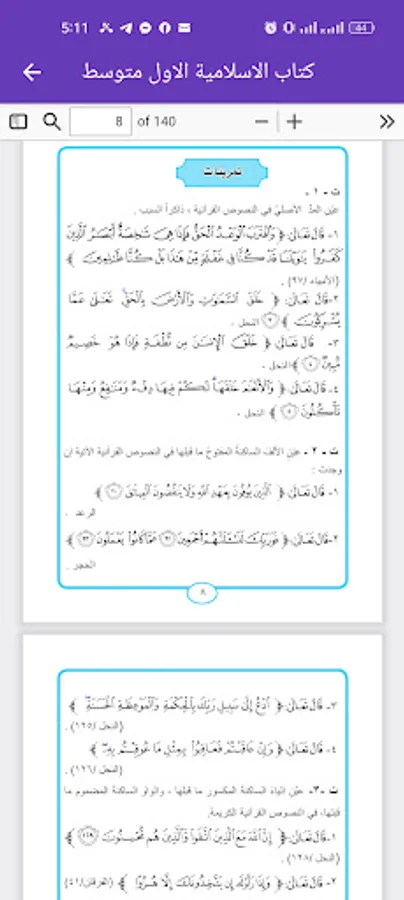 5:11
44
كتاب الاسلامية الاول متوسط
8 of 140
تمرينات
ت - ١ -
عيّن المدّ الأصليّ في النصوص القرآنية ، ذاكراً السبب .
١- قال تعالى: ﴿ وَاقْتَرَبَ الْوَعْدُ الْحَقُّ فَإِذَا هِيَ شَاخِصَةٌ أَبْصَارُ الَّذِينَ
كَفَرُوا يَا وَيْلَنَا قَدْ كُنَّا فِي غَفْلَةٍ مِنْ هَذَا بَلْ كُنَّا ظَالِمِينَ ﴾
(الأنبياء /٩٧) .
٢- قال تعالى: ﴿ خَلَقَ السَّمَاوَاتِ وَالْأَرْضَ بِالْحَقِّ تَعَالَى عَمَّا
يُشْرِكُونَ ﴾ النحل .
٣- قال تعالى: ﴿ خَلَقَ الْإِنْسَانَ مِنْ نُطْفَةٍ فَإِذَا هُوَ خَصِيمٌ
مُبِينٌ ﴾ النحل .
٤- قال تعالى: ﴿ وَالْأَنْعَامَ خَلَقَهَا لَكُمْ فِيهَا دِفْءٌ وَمَنَافِعُ وَمِنْهَا
تَأْكُلُونَ ﴾ النحل .
ت - ٢ - عيّن الألف الساكنة المفتوح ما قبلها في النصوص القرآنية الآتية ان
وجدت :
١- قال تعالى: ﴿ الَّذِينَ يُوفُونَ بِعَهْدِ اللَّهِ وَلَا يَنْقُضُونَ الْمِيثَاقَ ﴾
الرعد .
٢- قال تعالى: ﴿ فَوَرَبِّكَ لَنَسْأَلَنَّهُمْ أَجْمَعِينَ عَمَّا كَانُوا يَعْمَلُونَ ﴾
الحجر .
٨
٣- قال تعالى: ﴿ ادْعُ إِلَى سَبِيلِ رَبِّكَ بِالْحِكْمَةِ وَالْمَوْعِظَةِ الْحَسَنَةِ ﴾
(النحل /١٢٥) .
٤- قال تعالى: ﴿ وَإِنْ عَاقَبْتُمْ فَعَاقِبُوا بِمِثْلِ مَا عُوقِبْتُمْ بِهِ ﴾
(النحل /١٢٦) .
ت -٣- عيّن الياء الساكنة المكسور ما قبلها ، والواو الساكنة المضموم ما
قبلها، في النصوص القرآنية الكريمة.
١- قال تعالى: ﴿ إِنَّ اللَّهَ مَعَ الَّذِينَ اتَّقَوْا وَالَّذِينَ هُمْ مُحْسِنُونَ ﴾
(النحل /١٢٨) .
٢- قال تعالى: ﴿ وَإِذَا رَأَوْكَ إِنْ يَتَّخِذُونَكَ إِلَّا هُزُوًا ﴾ (الفرقان/٤١)